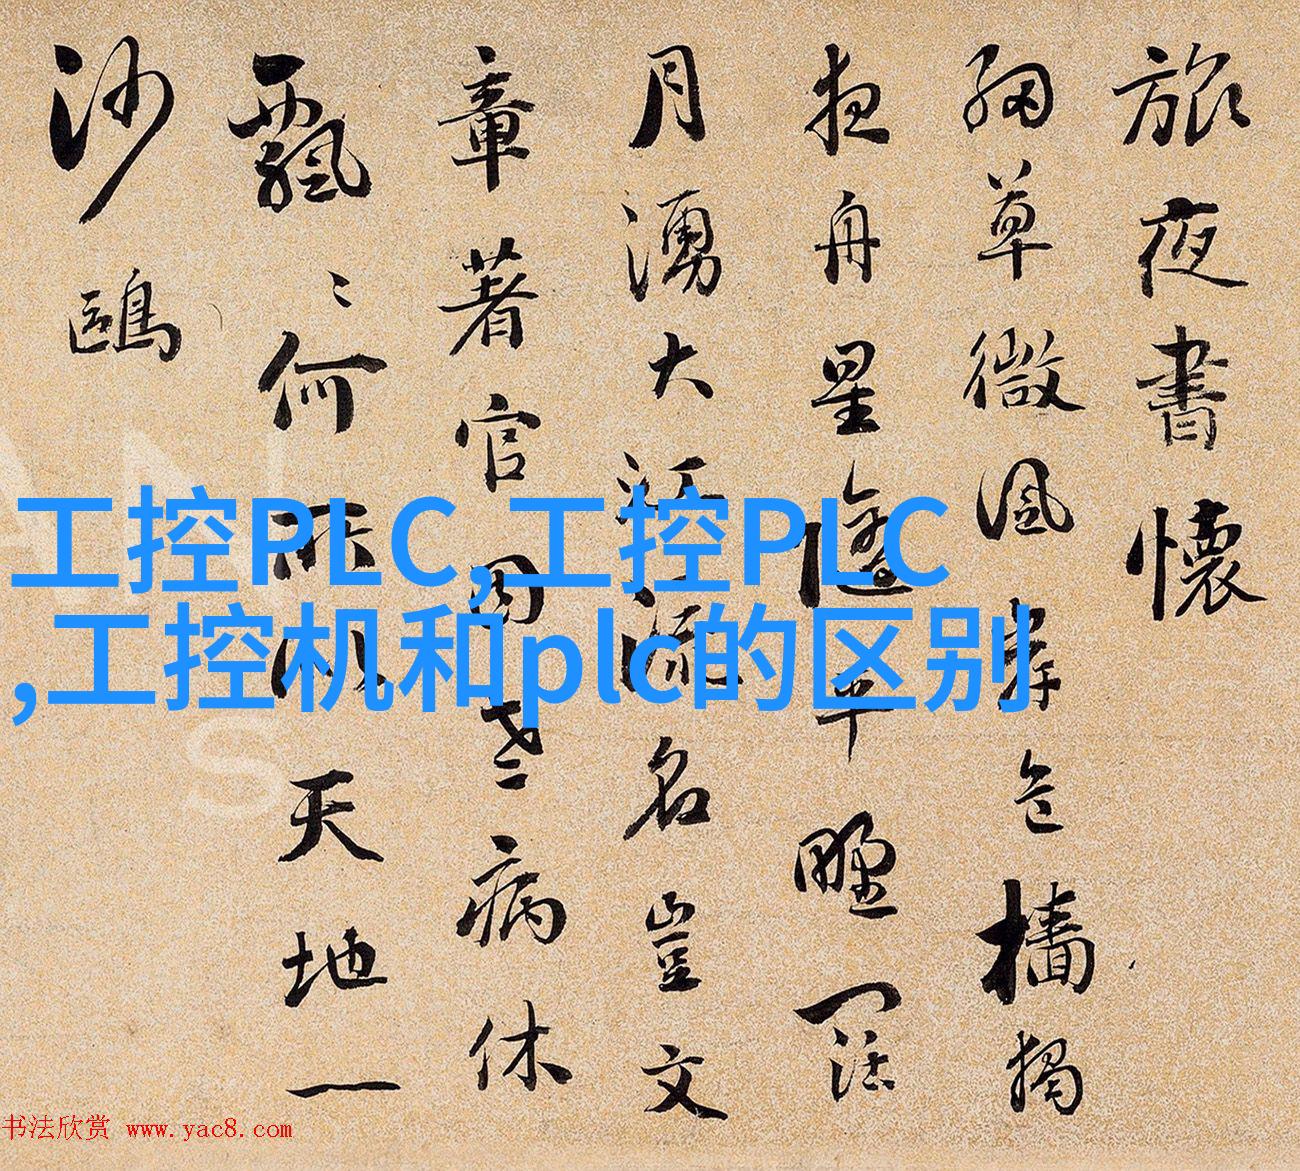 旅夜書懷
細草微風岸危檣獨
夜舟星隨平野闊
月湧大江流名豈文
章著官因老病休
飄〻何所似天地一
沙鷗
工控PLC,工控PLC
,工控机和plc的区别
书法欣赏 www.yac8.com